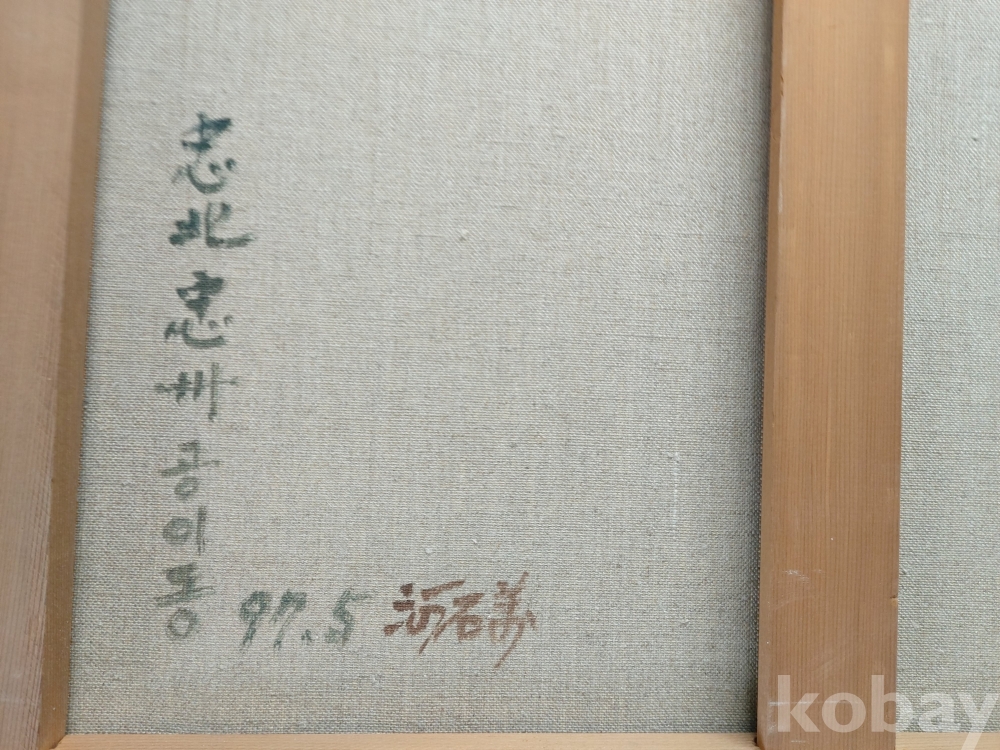 忠北 忠州 공이동
97.5 河石
kobay